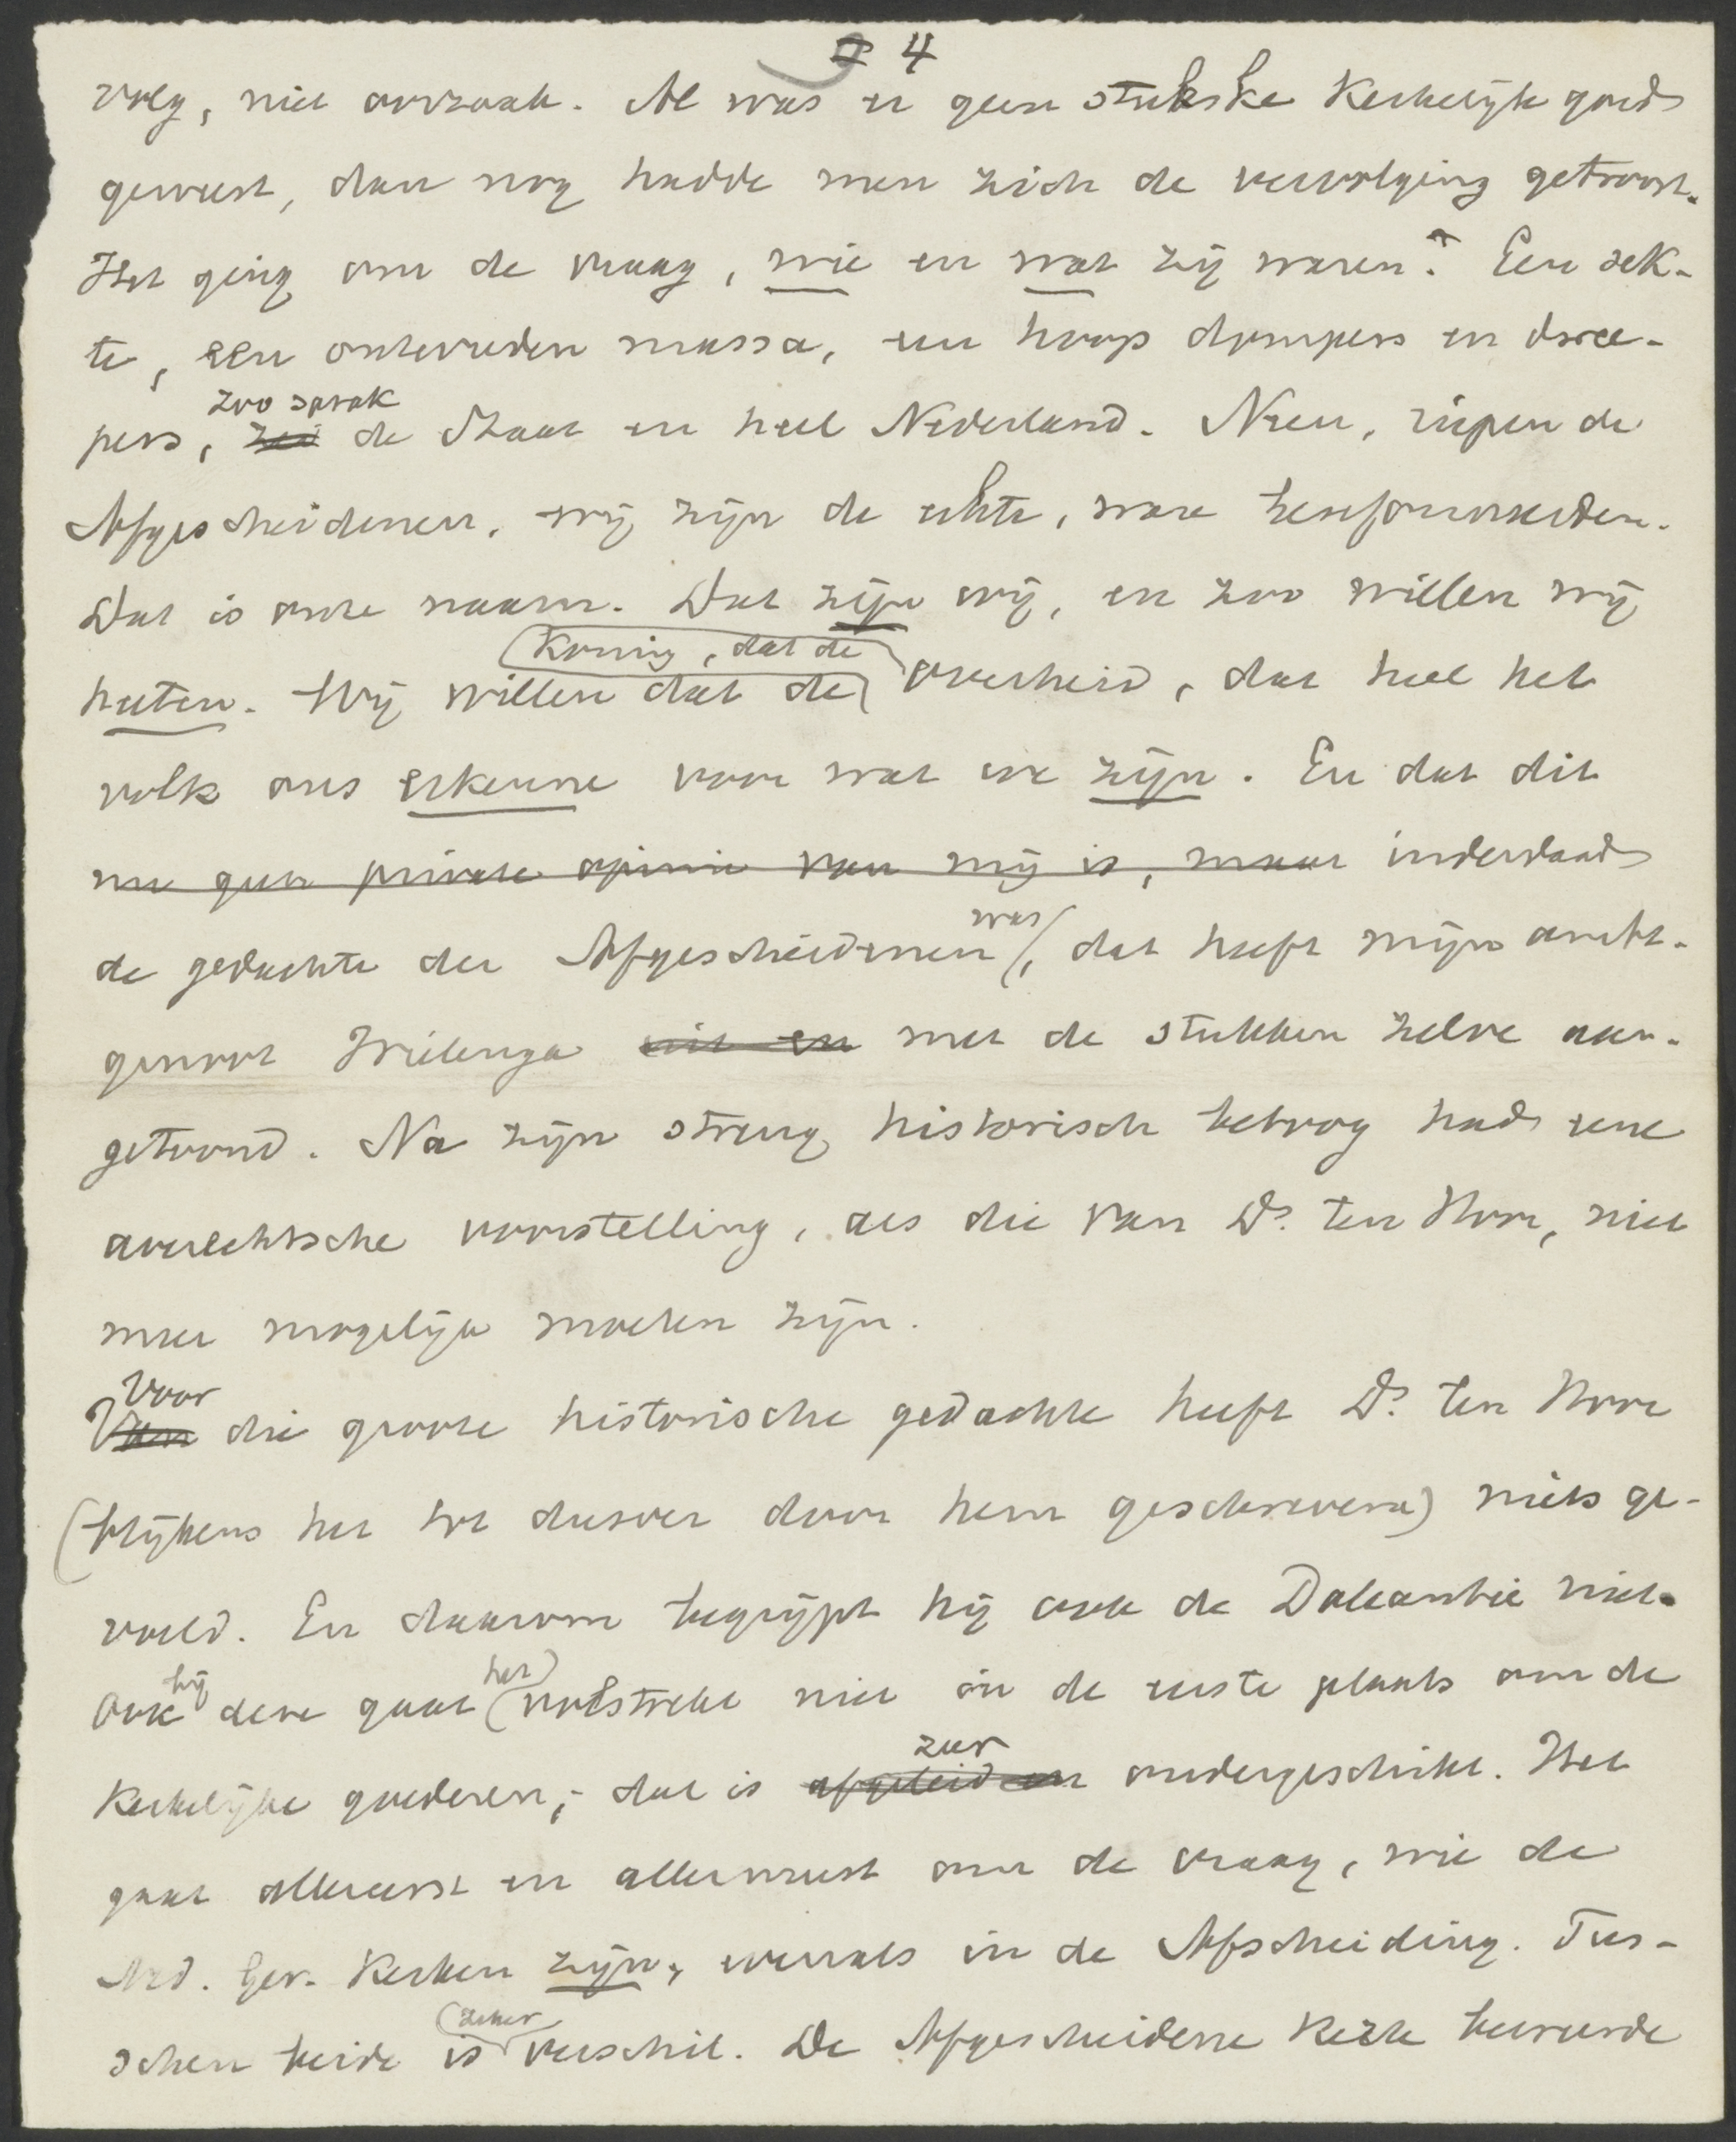 4
volg, niet oorzaak. Al was er geen stukske Kerkelijk goed
geweest, dan nog hadde men zich de vervolging getroost.
Het ging om de vraag, wie en wat zij waren? Een sek-
te, een ontevreden massa, een hoop dompers en dwee-
zoo sprak
pers, zei de Staat en heel Nederland. Neen, riepen de
Afgescheidenen, wij zijn de echte, ware Hereformeerden.
Dat is onze naam. Dat zijn wij, en zoo willen wij
Koning, dat de
heeten. Wij willen dat de overheid, dat heel het
volk ons erkenne voor wat we zijn. En dat dit
nu geen private opinie van mij is, maar inderdaad
was
de gedachte der Afgescheidenen, dat heeft mijn ambt-
genoot Wielenga uit en met de stukken zelve aan-
getoond. Na zijn streng historisch betoog had eene
averechtsche voorstelling, als die van Ds. ten Hoor, niet
meer mogelijk moeten zijn.
Voor
Van die groote historische gedachte heeft Ds. ten Hoor
(blijkens het tot dusver door hem geschrevene) niets ge-
voeld. En daarom begrijpt hij ook de Doleantie niet.
bij het
Ook deze gaat volstrekt niet in de eerste plaats om de
zeer
Kerkelijke goederen; dat is afgeleid en ondergeschikt. Het
gaat allereerst en allermeest om de vraag, wie de
Ned. Ger. Kerken zijn, evenals in de Afscheiding. Tus-
zeker
schen beide is verschil. De Afgescheidene Kerk beweerde